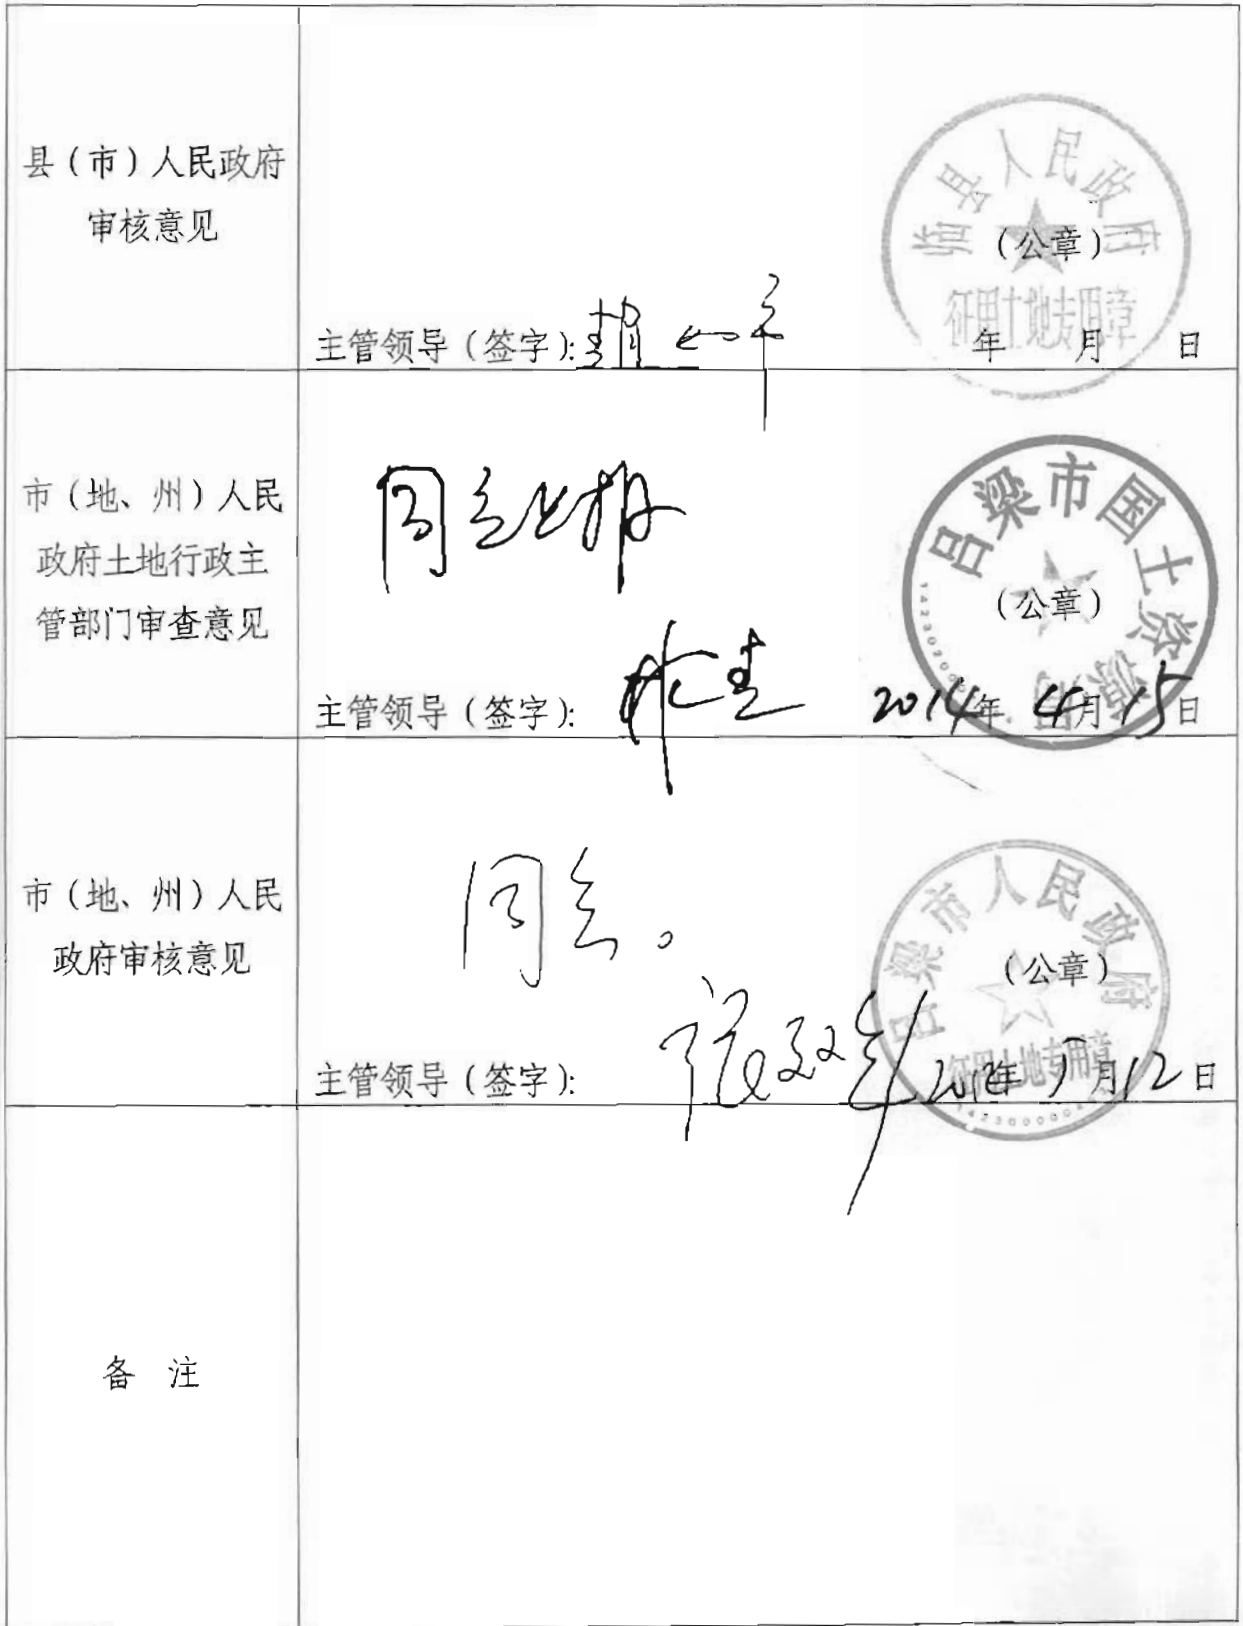 县（市）人民政府
审核意见
临县人民政府
（公章）
征用土地专用章
主管领导（签字）:
年 月 日
市（地、州）人民
政府土地行政主
管部门审查意见
同意上报
吕梁市国土资源局
（公章）
主管领导（签字）:
2014年 4月 15日
市（地、州）人民
政府审核意见
同意。
吕梁市人民政府
（公章）
征用土地专用章
主管领导（签字）:
月12日
备 注